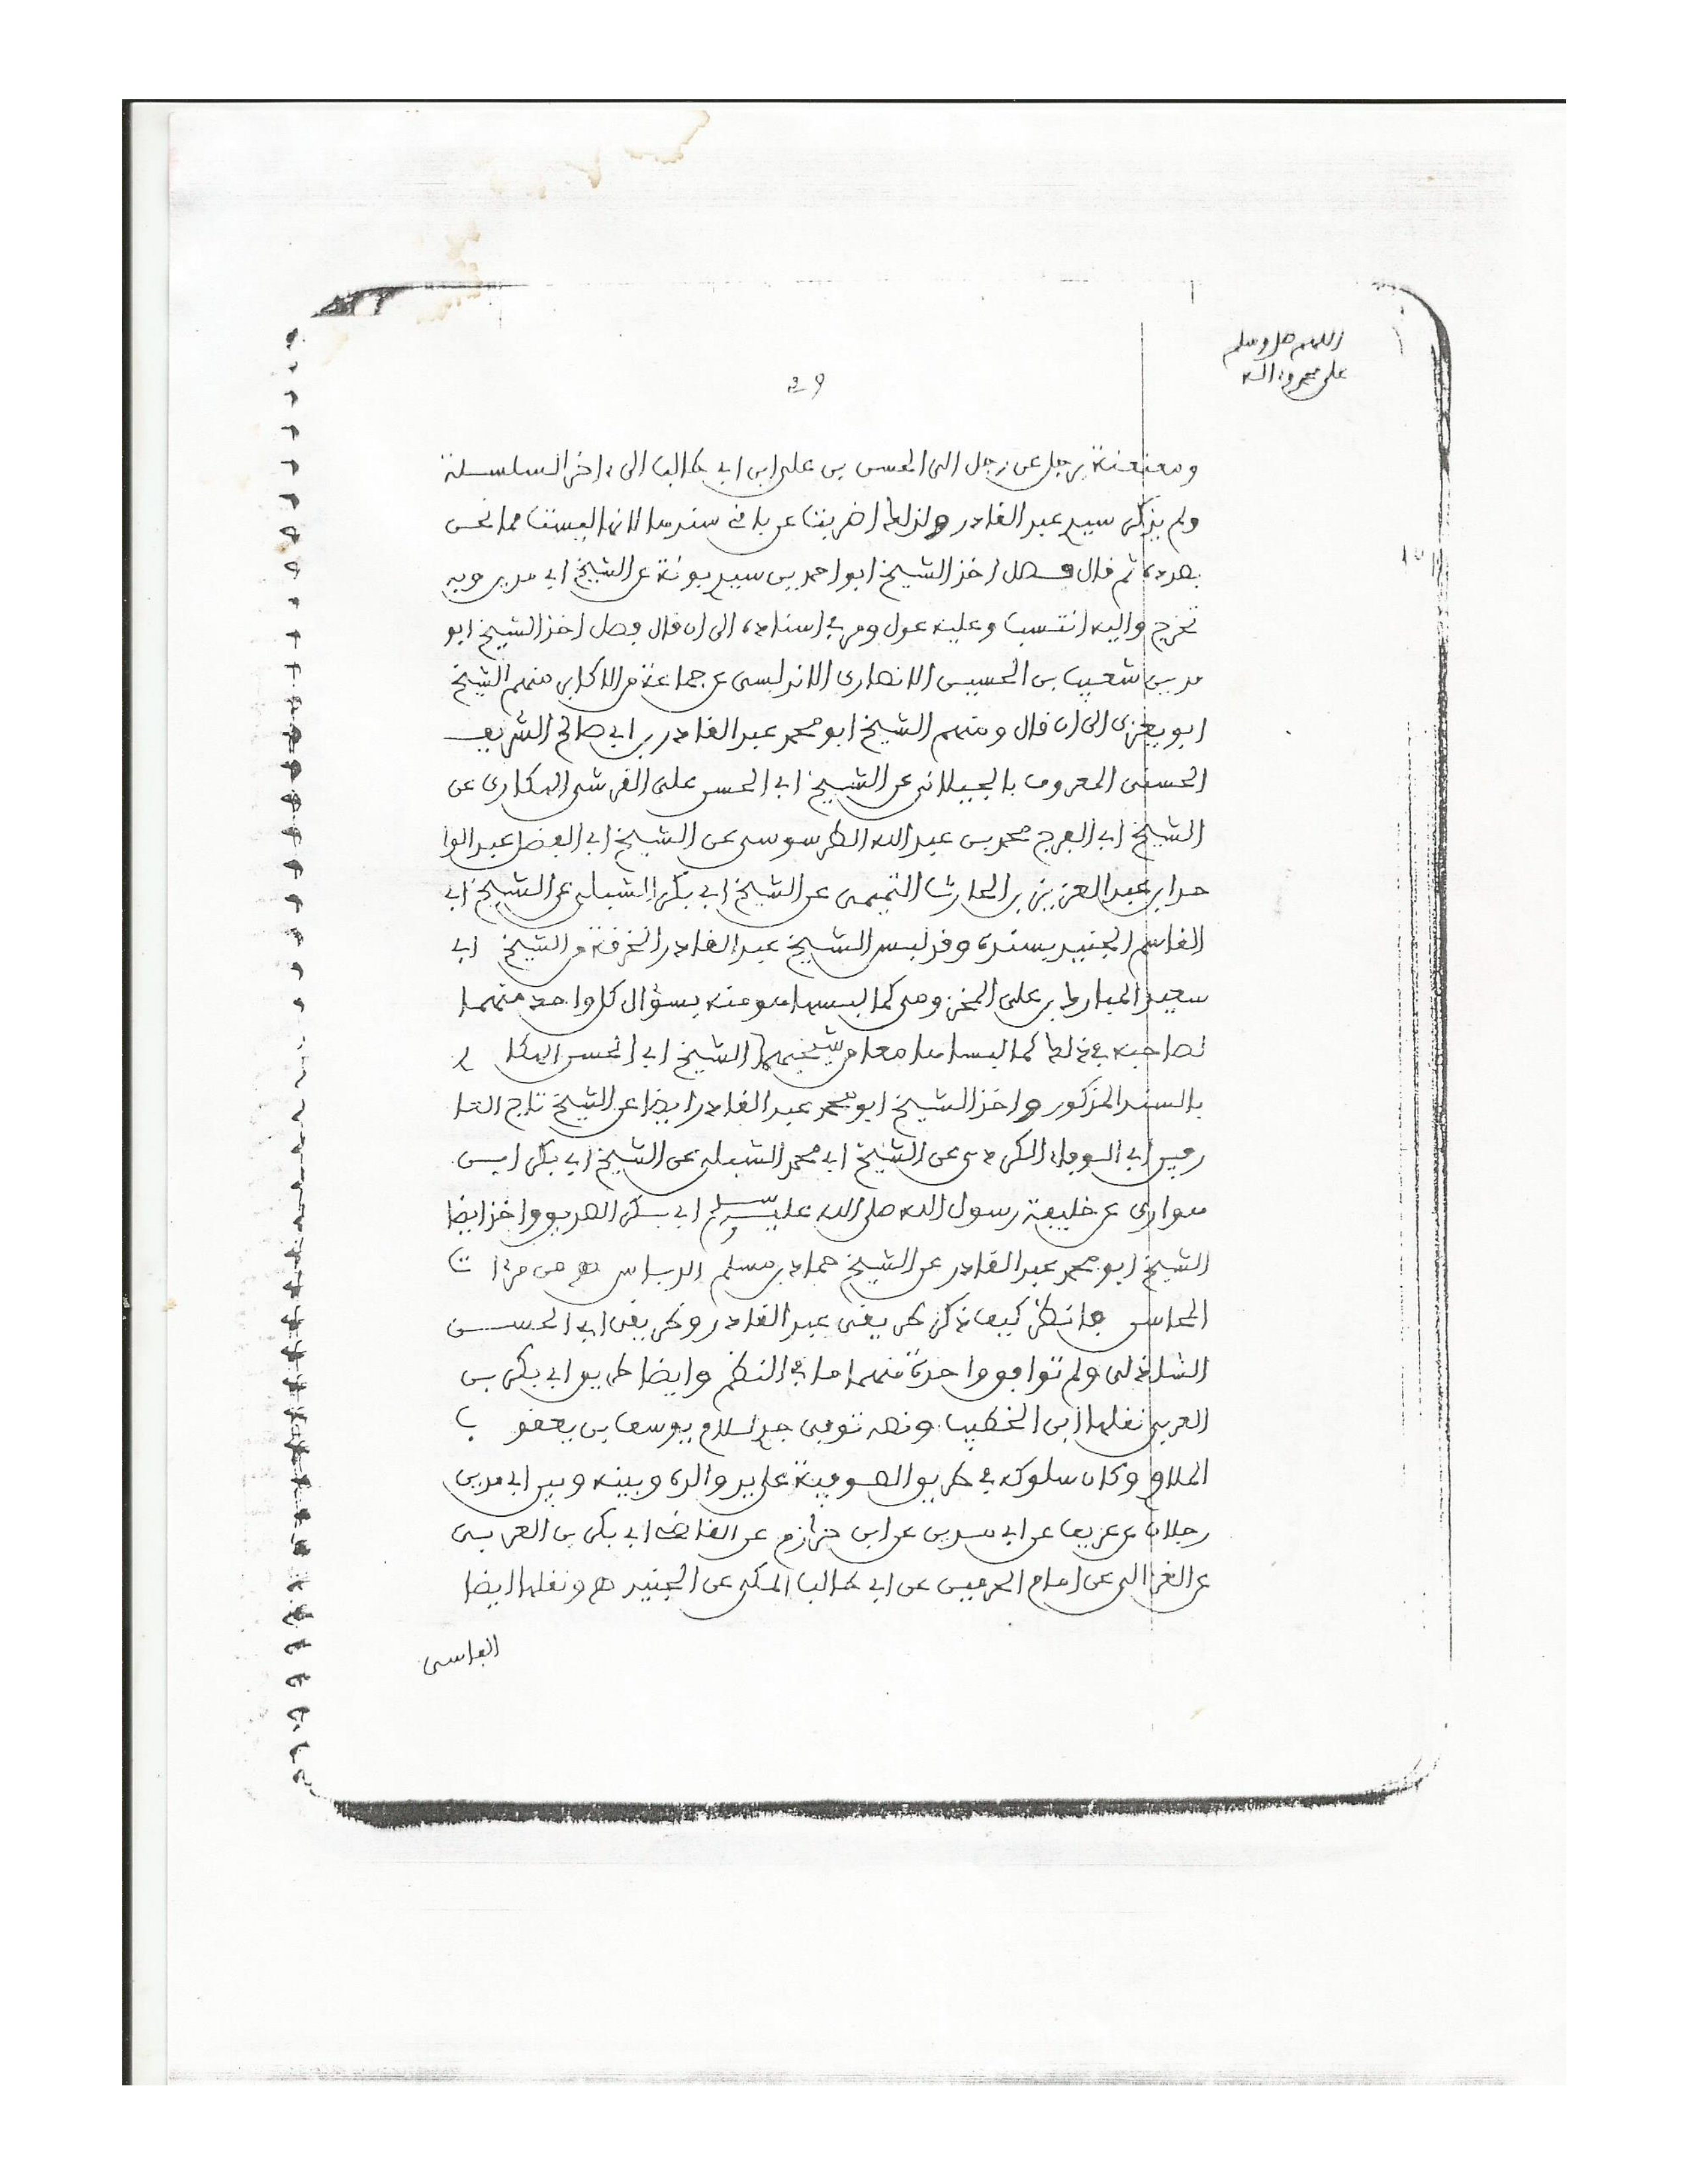 اللهم صل وسلم
على محمد وءاله
29
ومعنعنة برجل عن رجل الى الحسن بن على ابن ابي طالب الى ءاخر السلسلة
ولم يذكر سيد عبد القادر ولذلك اضربنا عن باقي سندها لانها ليست مما نحن
بصدده ثم قال فصل اخذ الشيخ ابو احمد بن سيد بونة عن الشيخ ابي مدين وبه
تخرج واليه انتسب وعليه عول ومر في اسناده الى ان قال فصل اخذ الشيخ ابو
مدين شعيب بن الحسين الانصارى الاندلسى عن جماعة من الاكابر منهم الشيخ
ابو يعزى الى ان قال ومنهم الشيخ ابو محمد عبد القادر بن ابي صالح الشريف
الحسنى المعروف بالجيلانى عن الشيخ ابي الحسن على القرشى الهكارى عن
الشيخ ابي الفرج محمد بن عبد الله الطرسوسى عن الشيخ ابي الفضل عبد الوا
حد ابن عبد العزيز بن الحارث التميمى عن الشيخ ابي بكر الشبلى عن الشيخ ابي
القاسم الجنيد بسنده وقد لبس الشيخ عبد القادر الخرقة من الشيخ ابي
سعيد المبارك بن على المخزومى كما لبسها هو منه بسؤال كل واحد منهما
لصاحبه في ذلك كما لبساها معا من شيخهما الشيخ ابي الحسن الهكا ر
بالسند المذكور واخذ الشيخ ابو محمد عبد القادر ايضا عن الشيخ تاج العا
رفين ابي الوفاء الكردى عن الشيخ ابي محمد الشبلى عن الشيخ ابي بكر ابن
هوارى عن خليفة رسول الله صلى الله عليه وسلم ابي بكر الصديق واخذ ايضا
الشيخ ابو محمد عبد القادر عن الشيخ حماد بن مسلم الدباس هـ من مرءا ت
المحاسن فانظر كيف ذكر طريقى عبد القادر وطريقى ابي الحسن
الشاذلى ولم توافق واحدة منهما ما في النظم وايضا طريق ابي بكر بن
العربي نقلها ابن الخطيب ونصه توفى جد لسلام يوسف بن يعقو ب
الملاق وكان سلوكه في طريق الصوفية على يد والده وبينه وبين ابي مدين
رجلان عن عزيف عن ابي مدين عن ابن حرازم عن القاضى ابي بكر بن العربى
عن الغزالى عن امام الحرمين عن ابي طالب المكى عن الجنيد هـ ونقلها ايضا
الفاسى